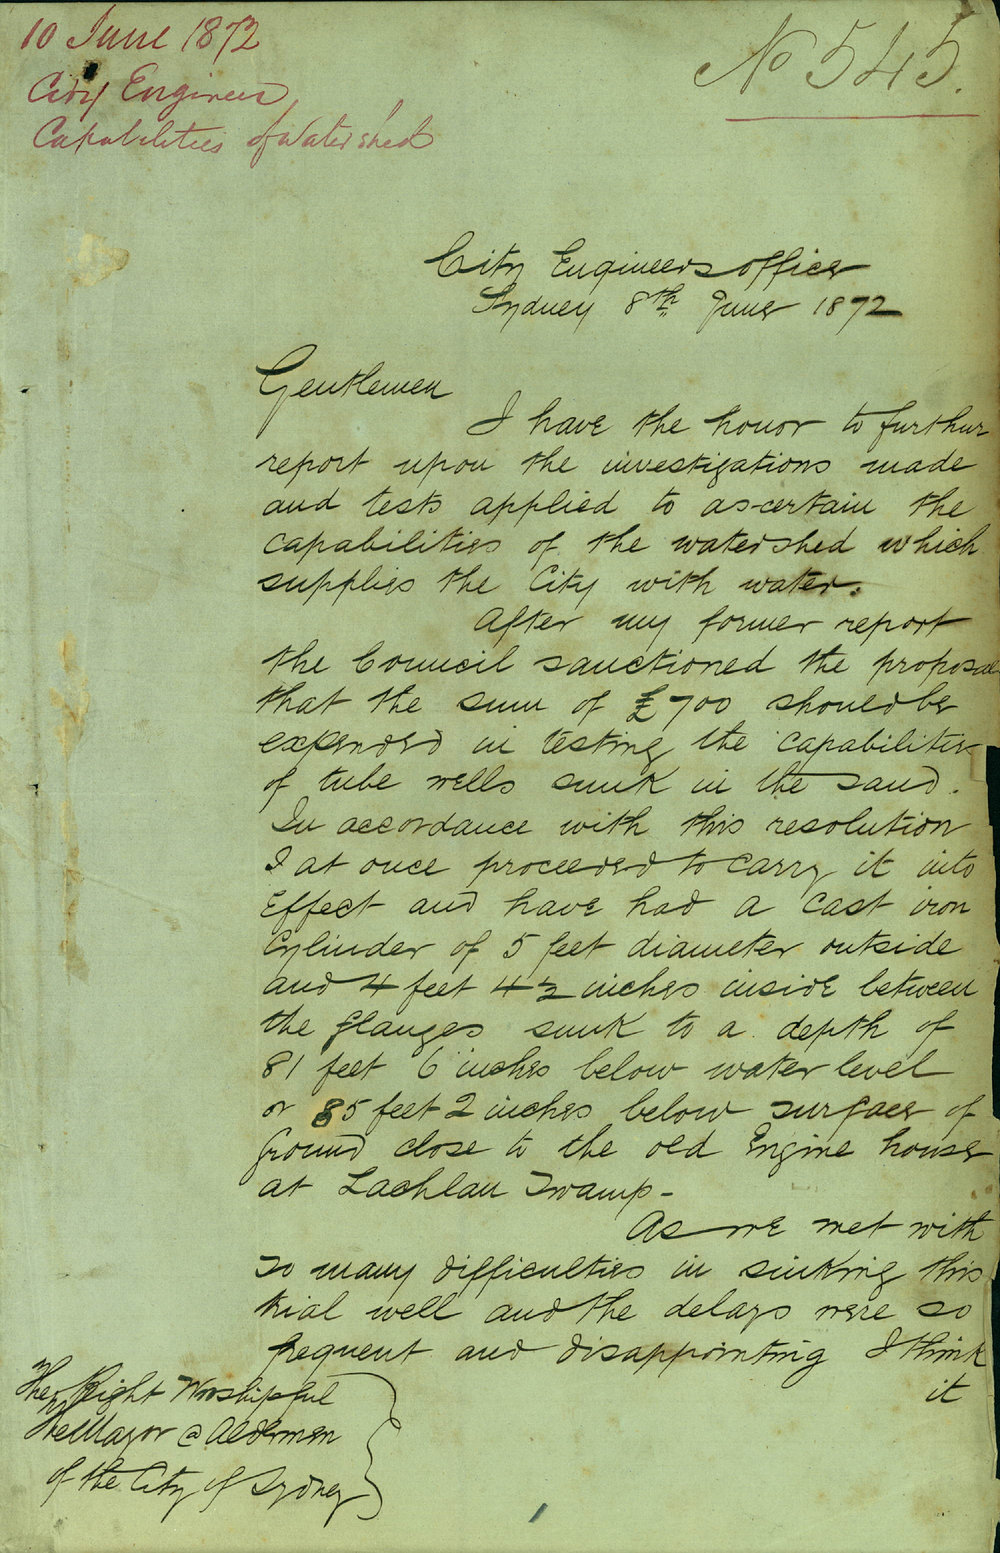 10 June 1872
City Engineer
Capabilities of Watershed
No 545.
City Engineers office
Sydney 8th June 1872
Gentlemen
I have the honor to further
report upon the investigations made
and tests applied to ascertain the
capabilities of the watershed which
supplies the City with water.
After my former report
the Council sanctioned the proposal
that the sum of £700 should be
expended in testing the capabilities
of tube wells sunk in the sand.
In accordance with this resolution
I at once proceeded to carry it into
Effect and have had a cast iron
Cylinder of 5 feet diameter outside
and 4 feet 4½ inches inside between
the flanges sunk to a depth of
81 feet 6 inches below water level
or 85 feet 2 inches below surface of
ground close to the old Engine house
at Lachlan Swamp -
As we met with
so many difficulties in sinking this
trial well and the delays were so
frequent and disappointing I think
it
The Right Worshipful
The Mayor @ Aldermen
of the City of Sydney
1